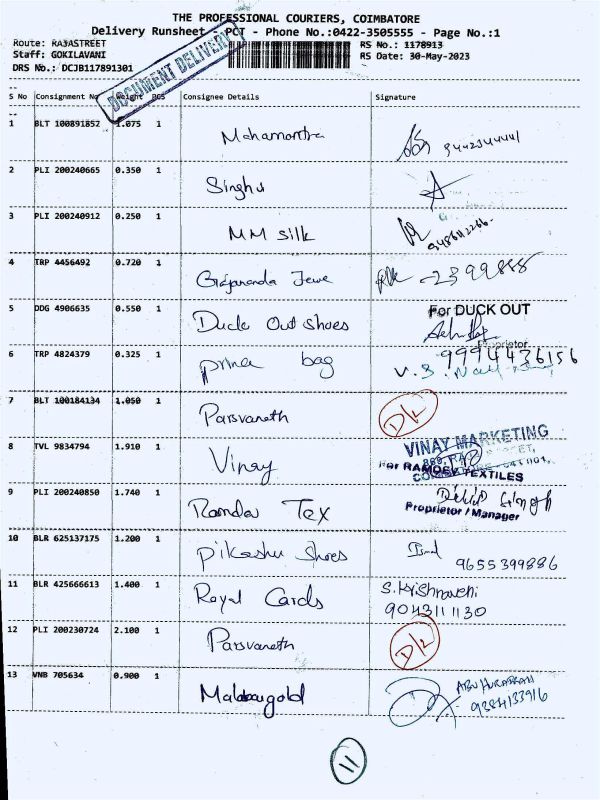 THE PROFESSIONAL COURIERS, COIMBATORE
Delivery Runsheet - PCT - Phone No.:0422-3505555 - Page No.:1
Route: RAJASTREET
RS No.: 1178913
Staff: GOKILAVANI
RS Date: 30-May-2023
DRS No.: DCJB117891301
DOCUMENT DELIVERY
S No Consignment No Weight PCS Consignee Details Signature
1 BLT 100891852 1.075 1 Mahamantra 9442344441
2 PLI 200240665 0.350 1 Singhs
3 PLI 200240912 0.250 1 MM Silk
4 TRP 4456492 0.720 1 Jewe - 2399888
5 DDG 4906635 0.550 1 Duck Out Shoes For DUCK OUT
Proprietor
6 TRP 4824379 0.325 1 prince bag 9994436156
7 BLT 100184134 1.050 1 Parsvanath D/L
8 TVL 9834794 1.910 1 Vinay VINAY MARKETING
For RAMDEV TEXTILES
9 PLI 200240850 1.740 1 Ramdev Tex
Proprietor / Manager
10 BLR 625137175 1.200 1 Pikashu Shoes 9655399886
11 BLR 425666613 1.400 1 Royal Cards S. Krishnaveni
9043111130
12 PLI 200230724 2.100 1 Parsvanath D/L
13 VNB 705634 0.900 1 Malabargold
9384133916
11